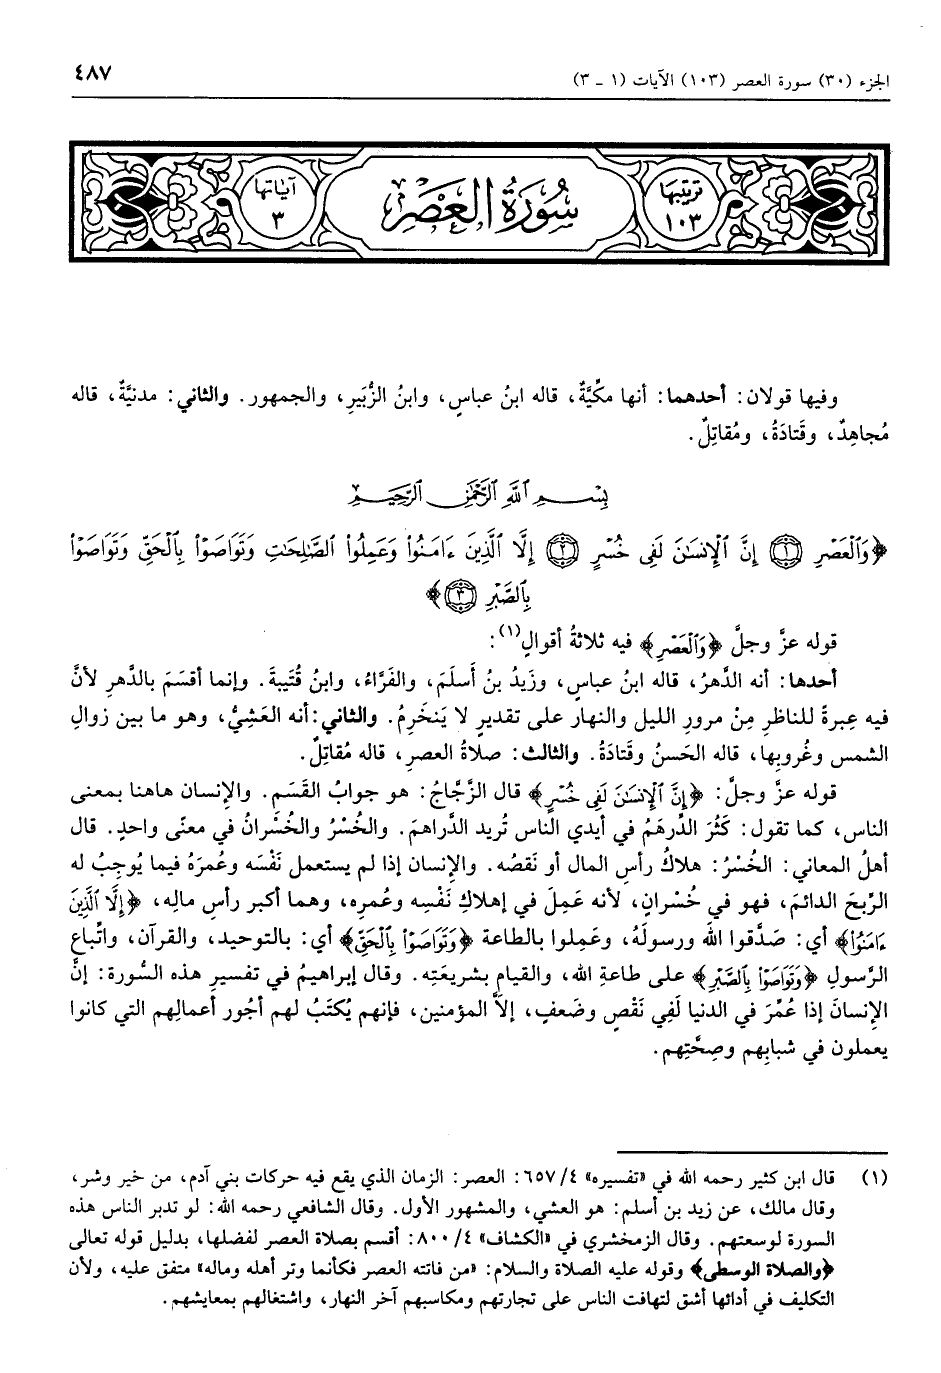 الجزء (٣٠) سورة العصر (١٠٣) الآيات (١ - ٣) ٤٨٧
ترتيبها ١٠٣ سُورَةُ العَصْرِ آيَاتها ٣
وفيها قولان: أحدهما: أنها مكِّيَّةٌ، قاله ابنُ عباسٍ، وابنُ الزُّبَيرِ، والجمهور. والثاني: مدنيَّةٌ، قاله
مُجاهِدٌ، وقَتادَةُ، ومُقاتِلٌ.
بِسْمِ اللَّهِ الرَّحْمَٰنِ الرَّحِيمِ
﴿وَٱلۡعَصۡرِ ١ إِنَّ ٱلۡإِنسَٰنَ لَفِى خُسۡرٍ ٢ إِلَّا ٱلَّذِينَ ءَامَنُواْ وَعَمِلُواْ ٱلصَّٰلِحَٰتِ وَتَوَاصَوۡاْ بِٱلۡحَقِّ وَتَوَاصَوۡاْ
بِٱلصَّبۡرِ ٣﴾
قوله عزَّ وجلَّ ﴿وَٱلۡعَصۡرِ﴾ فيه ثلاثةُ أقوالٍ(١):
أحدها: أنه الدَّهرُ، قاله ابنُ عباسٍ، وزَيدُ بنُ أَسلَمَ، والفَرَّاءُ، وابنُ قُتَيبةَ. وإنما أقسَمَ بالدَّهرِ لأنَّ
فيه عِبرةً للناظرِ مِنْ مرورِ الليل والنهار على تقديرٍ لا يَنخَرِمُ. والثاني: أنه العَشِيُّ، وهو ما بين زوالِ
الشمس وغُروبِها، قاله الحَسنُ وقَتادَةُ. والثالث: صلاةُ العصرِ، قاله مُقاتِلٌ.
قوله عزَّ وجلَّ: ﴿إِنَّ ٱلۡإِنسَٰنَ لَفِى خُسۡرٍ﴾ قال الزَّجَّاجُ: هو جوابُ القَسَمِ. والإنسان هاهنا بمعنى
الناس، كما تقول: كَثُرَ الدِّرهَمُ في أيدي الناس تُريد الدَّراهمَ. والخُسْرُ والخُسْرانُ في معنًى واحدٍ. قال
أهلُ المعاني: الخُسْرُ: هلاكُ رأسِ المال أو نَقصُه. والإنسان إذا لم يستعمل نَفْسَه وعُمرَهُ فيما يُوجِبُ له
الرِّبحَ الدائمَ، فهو في خُسْرانٍ، لأنه عَمِلَ في إهلاكِ نَفْسِه وعُمرِه، وهما أكبر رأسِ مالِه، ﴿إِلَّا ٱلَّذِينَ
ءَامَنُواْ﴾ أي: صَدَّقوا اللهَ ورسولَهُ، وعَمِلوا بالطاعة ﴿وَتَوَاصَوۡاْ بِٱلۡحَقِّ﴾ أي: بالتوحيد، والقرآن، واتِّباع
الرَّسولِ ﴿وَتَوَاصَوۡاْ بِٱلصَّبۡرِ﴾ على طاعةِ الله، والقيامِ بشريعَتِه. وقال إبراهيمُ في تفسيرِ هذه السُّورة: إنَّ
الإنسانَ إذا عُمِّرَ في الدنيا لَفِي نَقْصٍ وضَعفٍ، إلاَّ المؤمنين، فإنهم يُكتَبُ لهم أجُور أعمالِهم التي كانوا
يعملون في شبابِهم وصِحَّتِهم.
(١) قال ابن كثير رحمه الله في «تفسيره» ٤/ ٦٥٧: العصر: الزمان الذي يقع فيه حركات بني آدم، من خير وشر،
وقال مالك، عن زيد بن أسلم: هو العشي، والمشهور الأول. وقال الشافعي رحمه الله: لو تدبر الناس هذه
السورة لوسعتهم. وقال الزمخشري في «الكشاف» ٤/ ٨٠٠: أقسم بصلاة العصر لفضلها، بدليل قوله تعالى
﴿والصلاة الوسطى﴾ وقوله عليه الصلاة والسلام: «من فاتته العصر فكأنما وتر أهله وماله» متفق عليه، ولأن
التكليف في أدائها أشق لتهافت الناس على تجارتهم ومكاسبهم آخر النهار، واشتغالهم بمعايشهم.